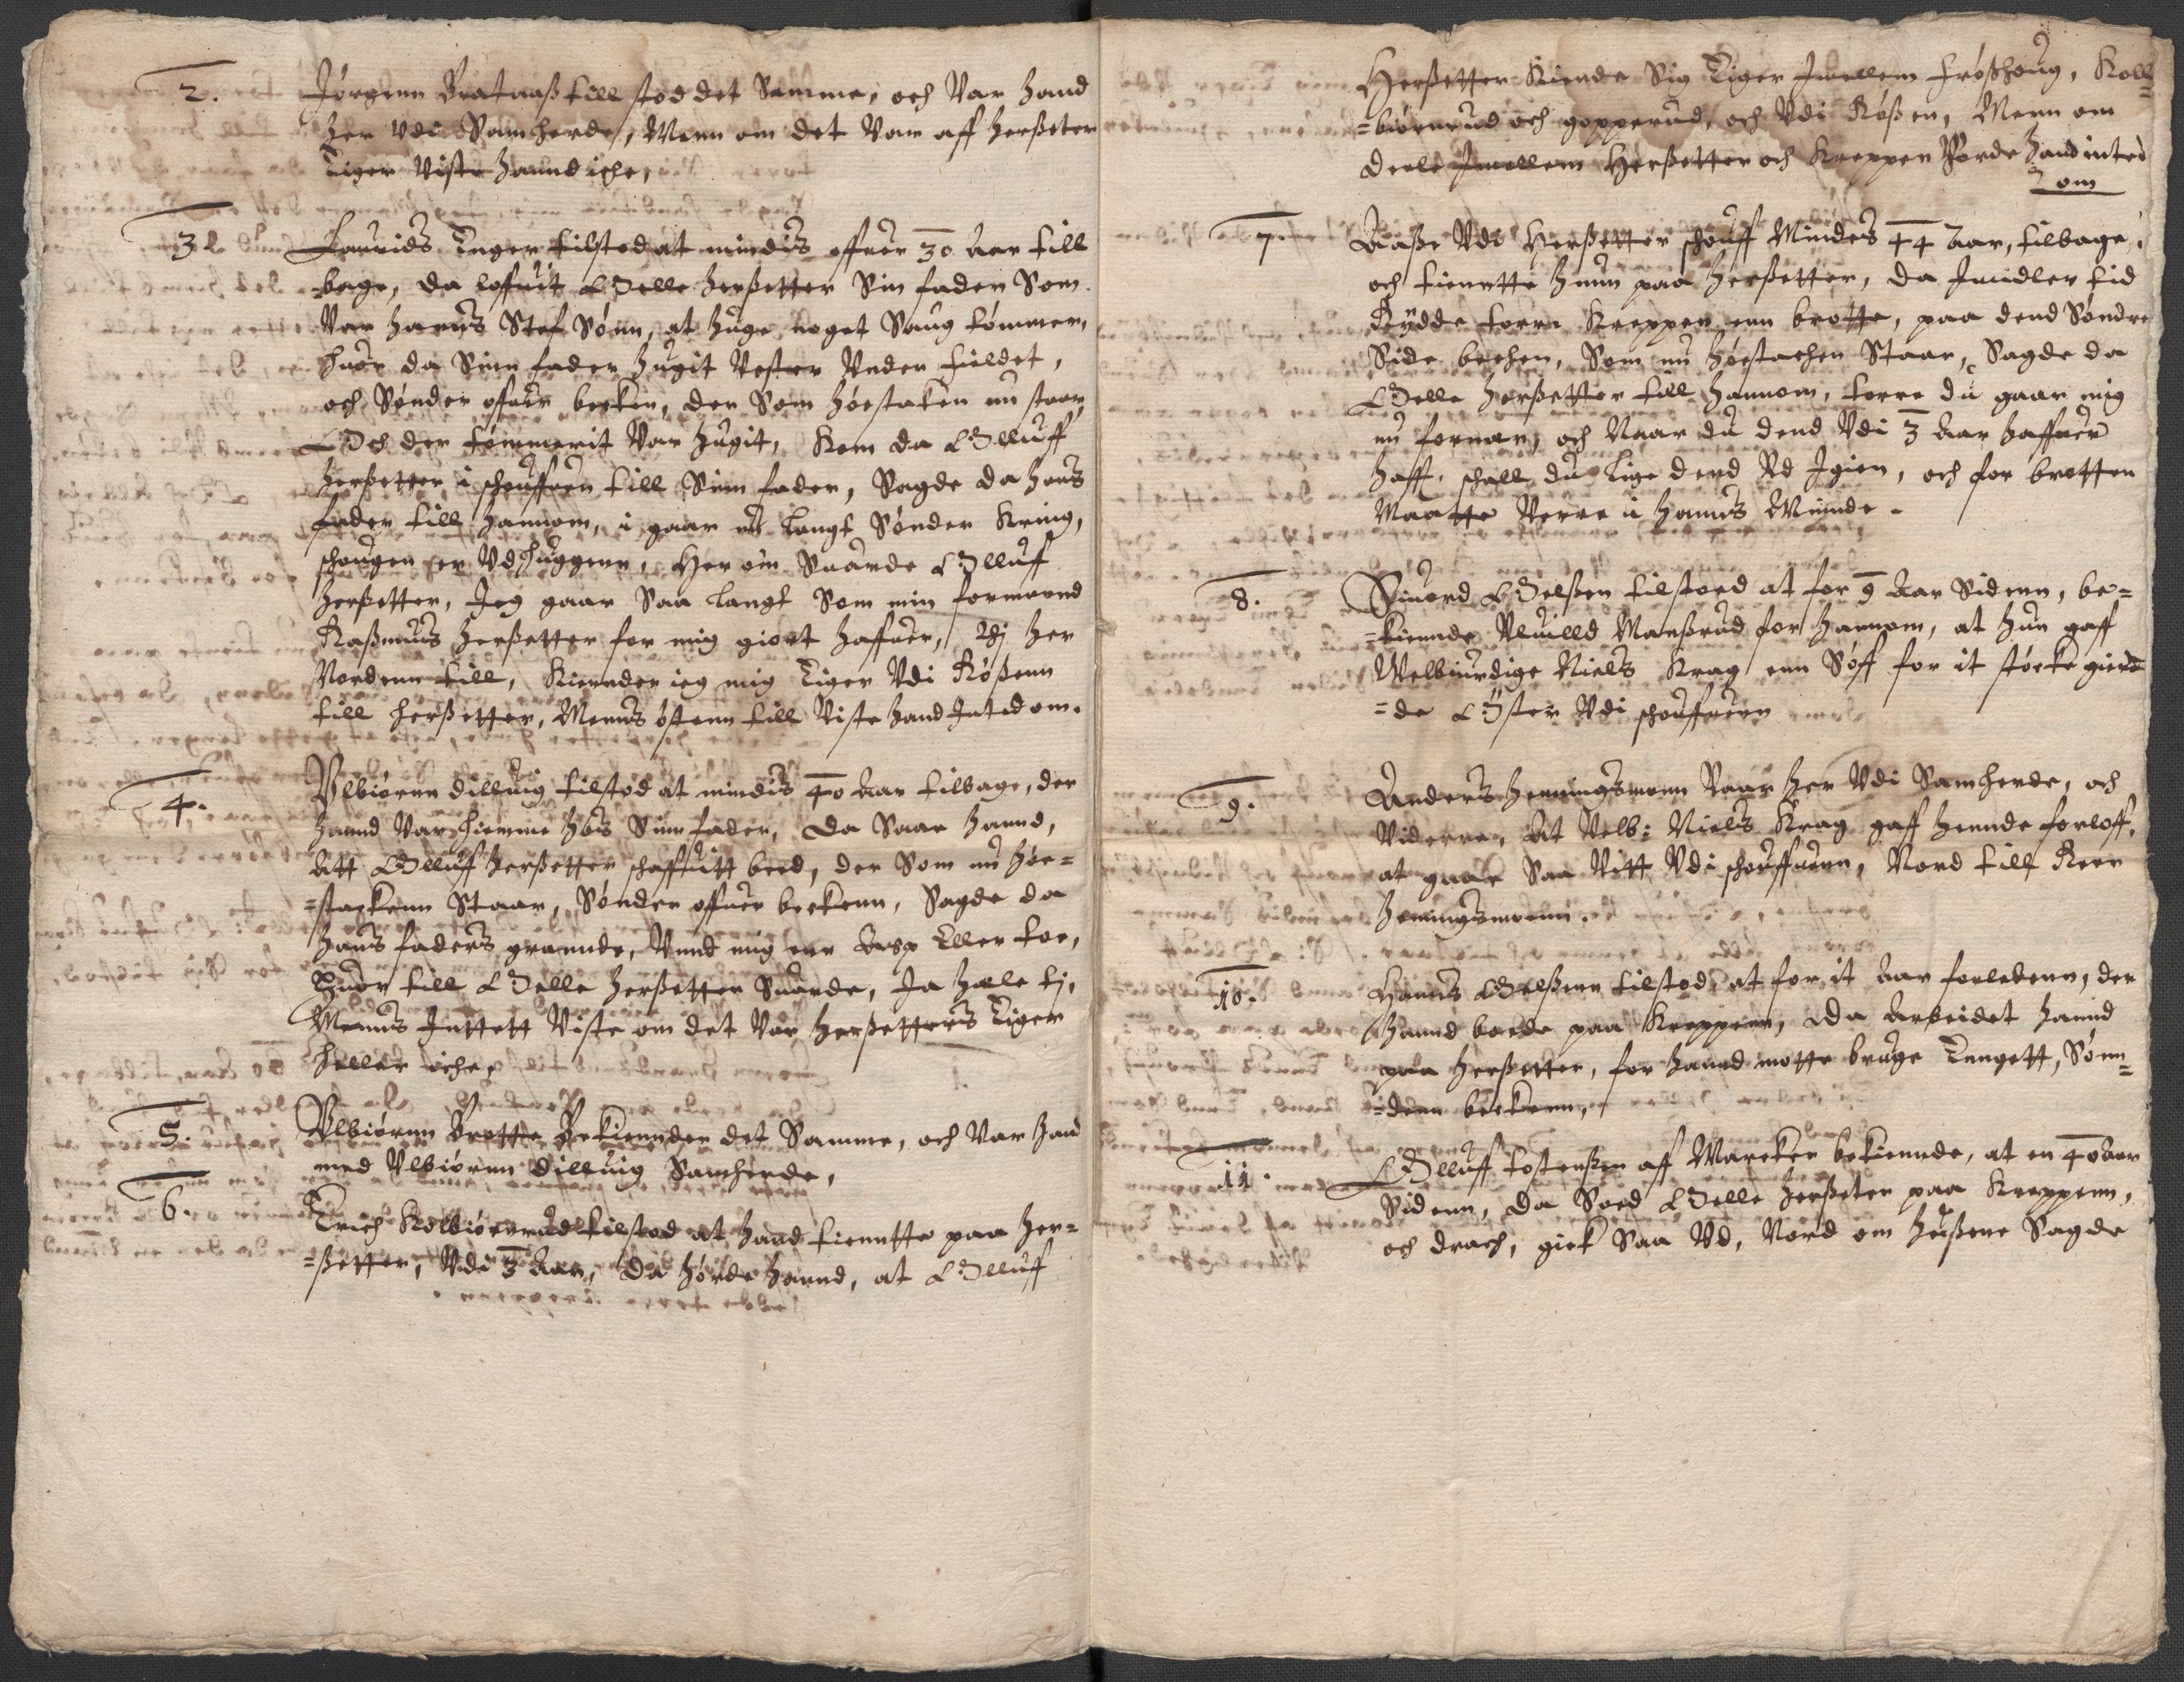 2.
Jørgenn Brataass till stod det Samme, och Var hand
her Udi Samherde, Menn om det Var aff Herßeter
Eiger Viste hannd iche,
3
Laurids Enger tilstod at mindis offuer 30 Aar till
bage, da loffuit Olle Herßetter Sin fader Som
Var Hanns Stef Sønn, at huge noget Saug tømmer,
huor da Sinn fader hugit Vester Under fieldet,
och Sønder offuer becken, der Som høestaken nu staar,
Och der tømmerit Var hugit, Kom da Olluff
Herßetter i schouffuen till Sinn fader, Sagde da hans
fader till hannom, i gaar langt Sønder Kring,
schougen er Udhuggenn, Her om Suarde Olluff
Herßetter, Jeg gaar Saa langt Som min formannd
Raßmus Herßetter for mig giort haffuer, her
Nordenn till, Kiennder ieg mig Eiger Udi Røßenn
till Herßetter, Menns østenn till Viste hand Inted om.
4.
Ulbiørnn Dilluig tilstod at mindis 40 Aar tilbage, der
hannd Var hiemme hos Sinn fader, Da Saae hannd,
Att Olluff Herßetter schaffuitt beed, der Som nu høe=
=stackenn Staar, Sønder offuer beckenn, Sagde da
hans faders grannde, Unnd mig enn Asp Eller toe,
Huor till Olle Herßetter Suarde, Ja halle tj,
Menns Inttett Viste om det Var Herßetters Eiger
heller iche,
5.
Ulbiørnn Brotte Bekiennder det Samme, och Var hand
med Ulbiørnn Dilluig Samherde,
6.
Erich Kolbiørnrud tilstod at hand tiennte paa Her=
=ßetter, Udi 3 Aar, Da hørde hannd, at Olluff
Herßetter Kiende Sig Eiger Imellem Froßhoug, Koll=
=biørnrud och gopperud, och Udi Røßen, Menn om
Deele Imellem Herßetter och Kreppen Vorde hand inted
om
7.
Aaße Udi Herßetter schouff Mindes 44 Aar, tilbage,
och tiennte hunn paa Herßetter, da Imidler tid
Rydde torre Kreppen enn brotte, paa dend Søndre
Side bechen, Som nu høestachen Staar, Sagde da
Olle Herßetter till hannom, Torre du gaar mig
nu fornær, och Naar du dend Udi 3 Aar haffuer
hafft, schall du lige dend Ud Igien, och for brotten
Maatte Verre i hanns Minde.
8.
Siuord Oelßen tilstoed at for 9 Aar Sidenn, be=
=kiennde Manßrud for hannom, at hun gaff
Welbiurdige Niels Krag enn Søff for it støcke gierd=
=de Øster Udi schouffuen
9.
Anders Henningsmoenn Vaar her Udi Samherde, och
Viderre, At Velb: Niels Krag gaff hennde forloff,
at gaae Saa Vitt Udi schouffuen, Nord till Reer
Henningsmoenn.
10.
Hanns Oelßenn tilstod, at for it Aar forledenn, der
hannd boede paa Kreppenn, Da Arbeidet hannd
paa Herßetter, for hannd motte bruge Enngett, Sønn=
=denn beckenn,
11.
Olluff tostenßen aff Marcker bekiennde, at en 40 Aar
Sidenn, Da Soed Olle Herßeter paa Kreppenn,
och drach, giek Saa Ud, Nord om hußene Sagde